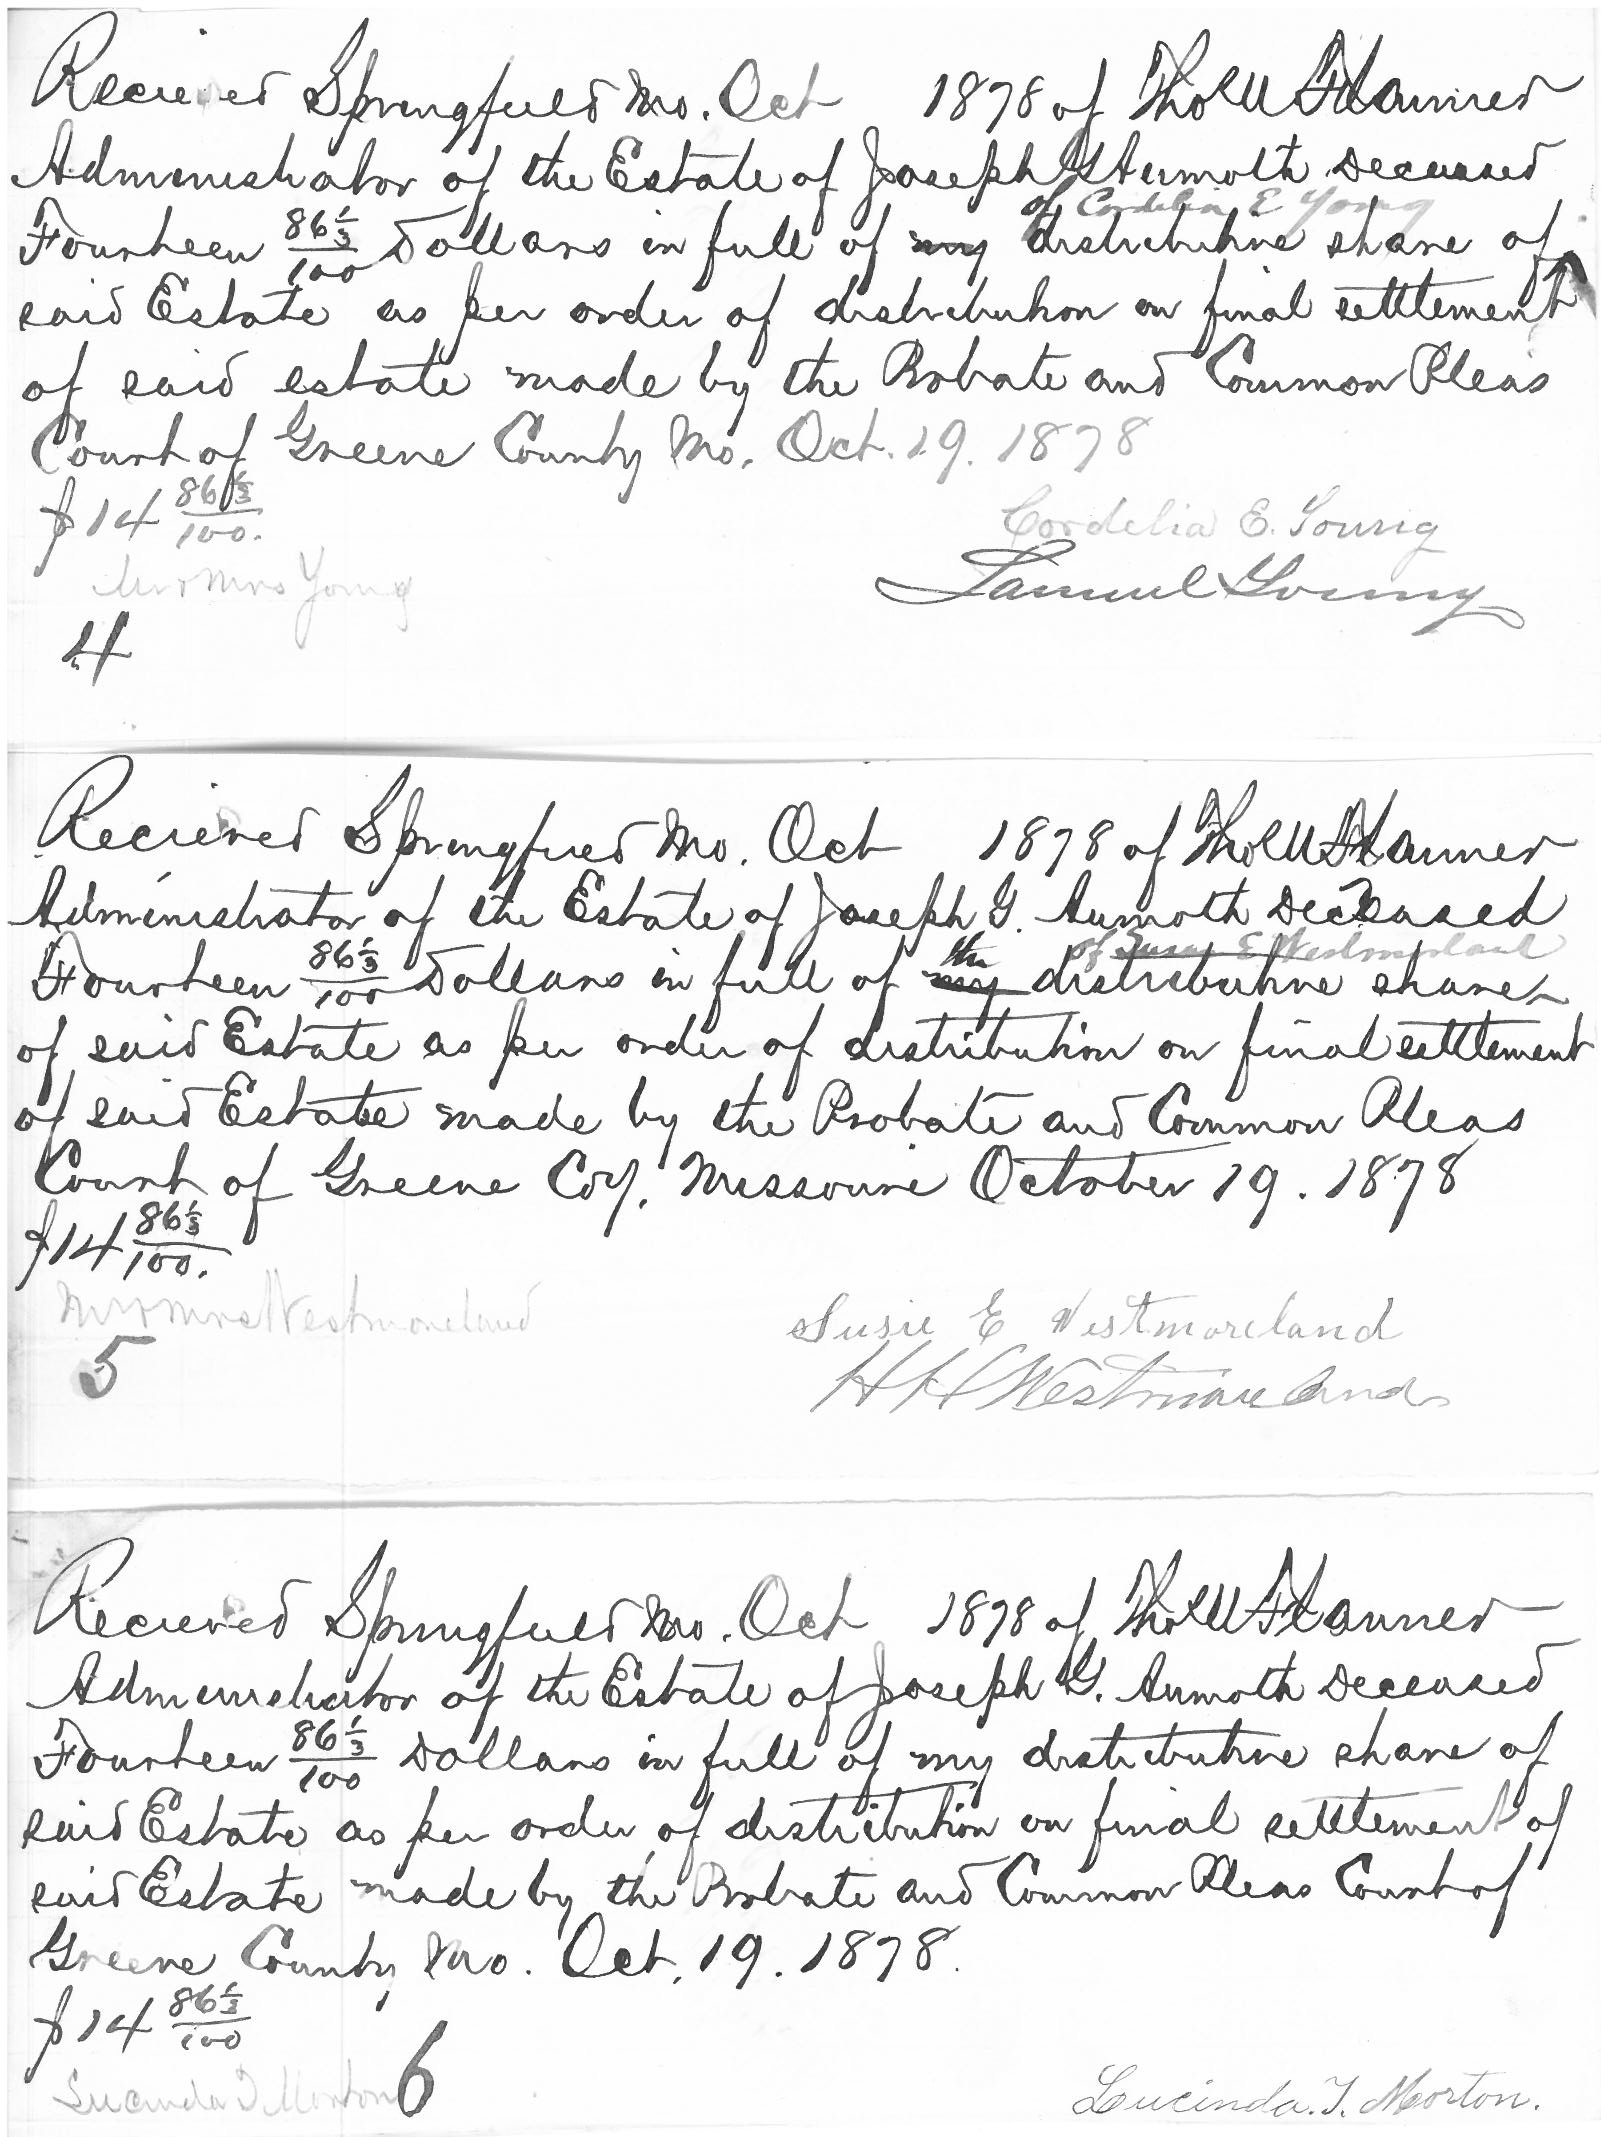 Recieved Springfield Mo. Oct 1878 of Thos U Flanner
Administrator of the Estate of Joseph G Aumoth Deceased
of Cordelia E Young
Fourteen 86 1/3/100 Dollars in full of my distributive share of
said Estate as per order of distribution on final settlement
of said estate made by the Probate and Common Pleas
Court of Greene County Mo. Oct. 19. 1878
$14 86 1/3/100.
Cordelia E. Young
Mr & Mrs Young
Samuel Young
4
Recieved Springfield Mo. Oct 1878 of Thos U Flanner
Administrator of the Estate of Joseph G. Aumoth Deceased
the of Susan E Westmoreland
Fourteen 86 1/3/100 Dollars in full of my distributive share
of said Estate as per order of distribution on final settlement
of said Estate made by the Probate and Common Pleas
Court of Greene Coy. Missouri October 19. 1878
$14 86 1/3/100.
Mr & Mrs Westmoreland
Susie E Westmoreland
5
H H Westmoreland
Recieved Springfield Mo. Oct 1878 of Thos U Flanner
Administrator of the Estate of Joseph G. Aumoth Deceased
Fourteen 86 1/3/100 Dollars in full of my distributive share of
said Estate as per order of distribution on final settlement of
said Estate made by the Probate and Common Pleas Court of
Greene County Mo. Oct. 19. 1878.
$14 86 1/3/100
6
Lucinda T Morton
Lucinda. T. Morton.